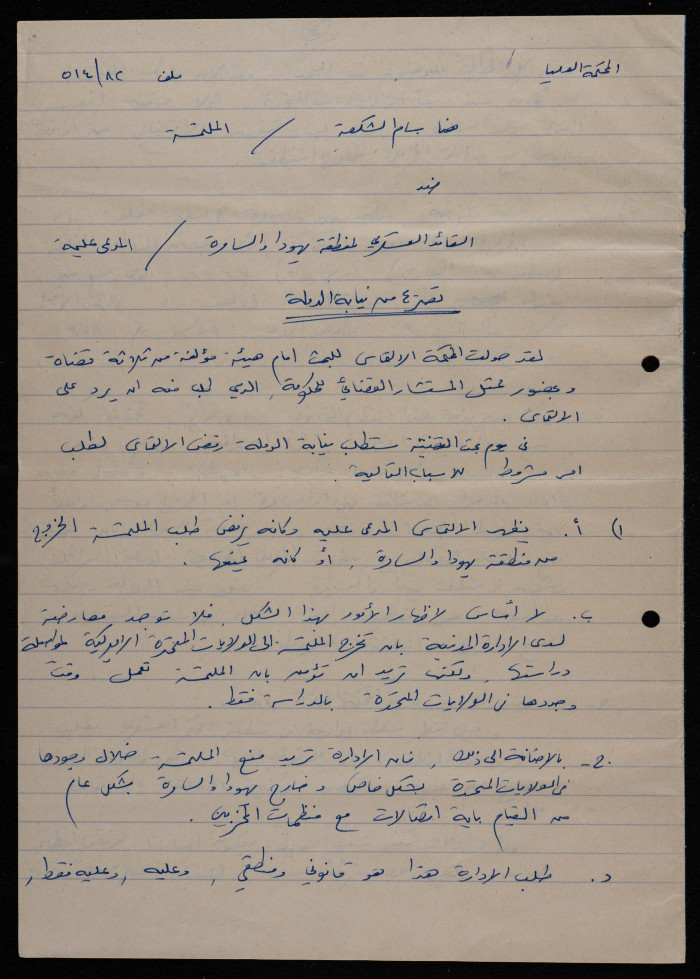 المحكمة العليا ملف ٥١٤/٨٢
هنا بسام الشكعة / الملتمسة
ضد
القائد العسكري لمنطقة يهودا والسامرة / المدعى عليه
تصريح من نيابة الدولة
لقد حولت المحكمة الالتماس للبحث امام هيئة مؤلفة من ثلاثة قضاة
وبحضور ممثل المستشار القضائي للحكومة، الذي طلب منه ان يرد على
الالتماس.
في يوم بحث القضية ستطلب نيابة الدولة رفض الالتماس لطلب
امر مشروط للاسباب التالية:
١) أ. يظهر الالتماس المدعى عليه وكانه يرفض طلب الملتمسة الخروج
من منطقة يهودا والسامرة، أو كانه يمنعها.
ب. لا أساس لاظهار الأمور بهذا الشكل. فلا توجد معارضة
لدى الإدارة المدنية بان تخرج الملتمسة الى الولايات المتحدة الامريكية لمواصلة
دراستها، ولكنها تريد ان تؤمن بان الملتمسة تعمل وقت
وجودها في الولايات المتحدة بالدراسة فقط.
ج- بالاضافة الى ذلك، فان الادارة تريد منع الملتمسة خلال وجودها
في الولايات المتحدة بشكل خاص وخارج يهودا والسامرة بشكل عام
من القيام باية اتصالات مع منظمات المخربين.
د. طلب الادارة هذا هو قانوني ومنطقي، وعليه، وعليه فقط،